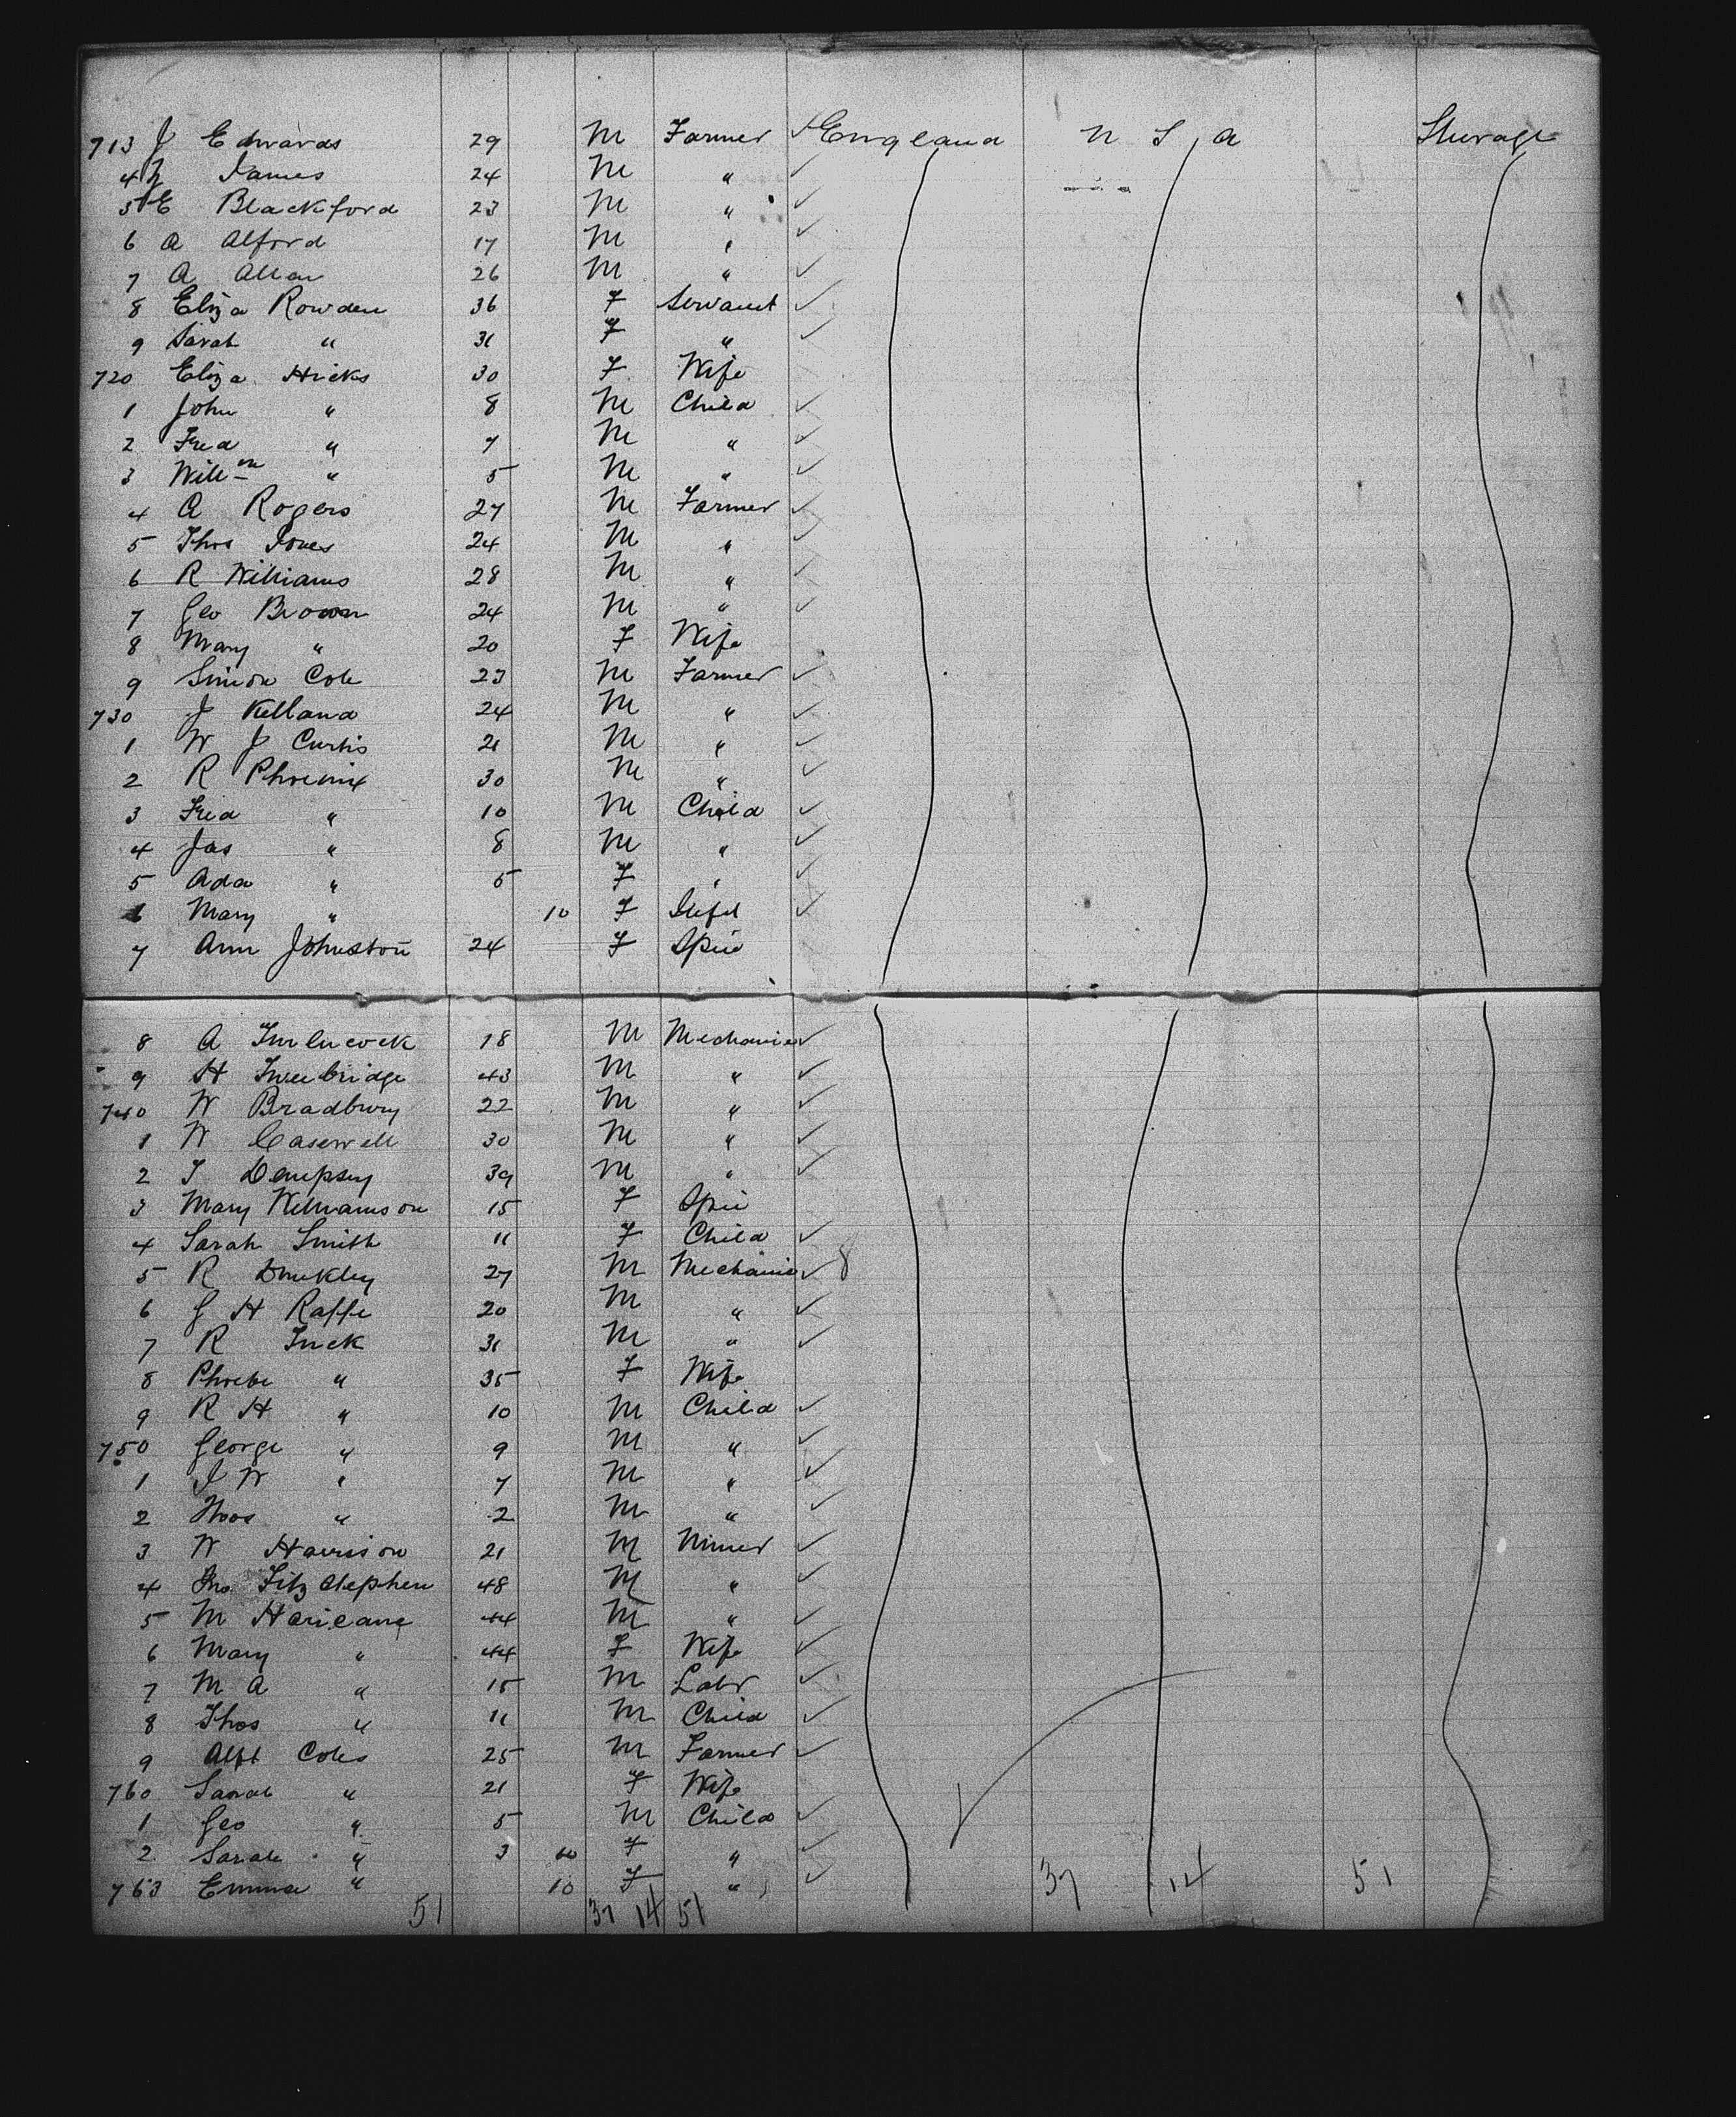 713 J Edwards 29 M Farmer ✓ England U S A Steerage
4 J James 24 M " ✓
5 E Blackford 23 M " ✓
6 A Alford 17 M " ✓
7 A Allen 26 M " ✓
8 Eliza Rowden 36 F Servant ✓
9 Sarah " 31 F " ✓
720 Eliza Hicks 30 F Wife
1 John " 8 M Child ✓
2 Fred " 7 M " ✓
3 Willm " 5 M " ✓
4 A Rogers 27 M Farmer ✓
5 Thos Jones 24 M " ✓
6 R Williams 28 M " ✓
7 Geo Brown 24 M " ✓
8 Mary " 20 F Wife
9 Simon Cole 23 M Farmer ✓
730 J Kelland 24 M " ✓
1 W J Curtis 21 M " ✓
2 R Phoenix 30 M " ✓
3 Fred " 10 M Child ✓
4 Jas " 8 M " ✓
5 Ada " 5 F " ✓
6 Mary " 10 F Inft ✓
7 Ann Johnston 24 F Spin
8 A 18 M Mechanic ✓
9 H 43 M " ✓
740 W Bradbury 22 M " ✓
1 W Casewell 30 M " ✓
2 T Dempsey 39 M " ✓
3 Mary Williamson 15 F Spin
4 Sarah Smith 11 F Child ✓
5 R Dunkley 27 M Mechanic ✓ 8
6 G H Raffe 20 M " ✓
7 R Tuck 31 M " ✓
8 Phoebe " 35 F Wife
9 R H " 10 M Child ✓
750 George " 9 M " ✓
1 J W " 7 M " ✓
2 Thos " 2 M " ✓
3 W Harrison 21 M Miner ✓
4 Jno Fitzstephen 48 M " ✓
5 M 44 M " ✓
6 Mary " 44 F Wife ✓
7 M A " 15 M Labr ✓
8 Thos " 11 M Child ✓
9 Alft Coles 25 M Farmer ✓
760 Sarah " 21 F Wife
1 Geo " 5 M Child ✓
2 Sarah " 3 F " ✓
763 Emma " 10 F " ✓ 37 14 51
51 37 14 51